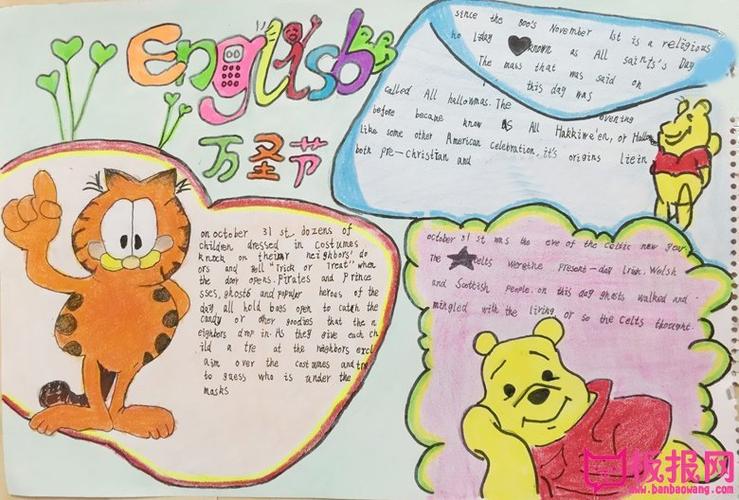 English
万圣节
since the 800's November 1st is a religious
holiday known as All saints's Day
The mass that was said on
this day was
called All hallowmas. The evening
before became know as All Hakkiwe'en, or Hallow
like some other American celebration, it's origins liein
both pre-christian and
on october 31 st. dozens of
children dressed in costumes
knock on their neighbors' do
ors and sell "Trick or Treat" when
the door opens. Pirates and Prince
sses, ghosts and popular heroes of the
day all hold baes open to catch the
candy or other goodies that the n
eighbors drop in. As they give each ch
ild a tre at the neighbors excl
aim over the costumes and try
to guess who is under the
masks
october 31 st was the eve of the Celtic new year.
The celts werethe present-day Lrish, Walsh
and Scottish people. on this day ghosts walked and
mingled with the living or so the Celts thought.
板报网
www.banbaowang.com